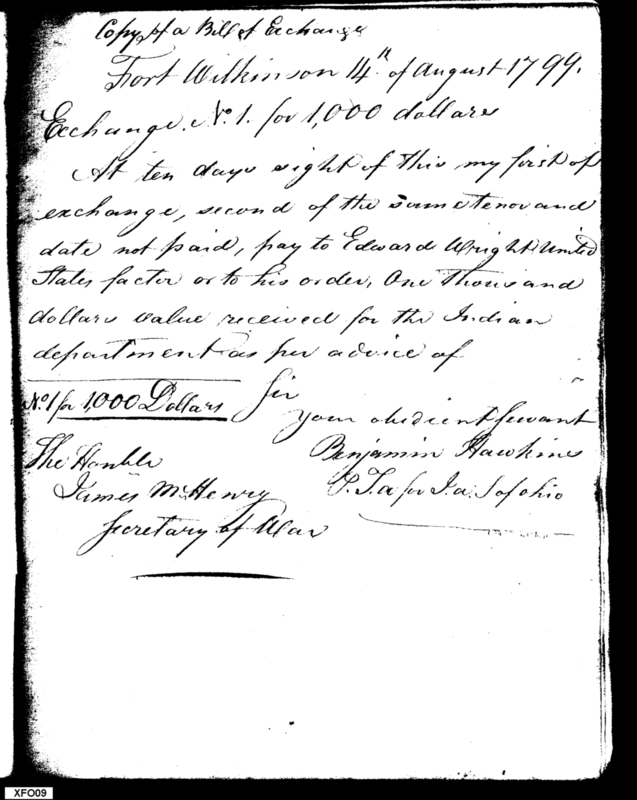 Copy of a Bill of Exchange
Fort Wilkinson 14th of August 1799.
Exchange. No. 1. for 1,000 dollars
At ten days sight of this my first of
exchange, second of the same tenor and
date not paid, pay to Edward Wright United
States factor or to his order, One thousand
dollars value received for the Indian
department as per advice of
Sir
No. 1 for 1,000 Dollars
your obedient servant
Benjamin Hawkins
P. T. a for I. a. S of ohio
The Honble
James McHenry
Secretary of War
XFO09